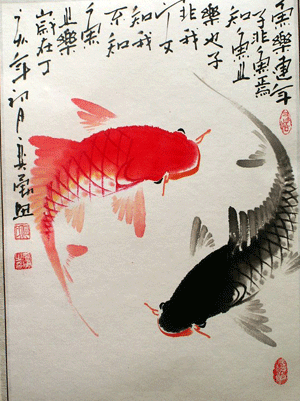 魚樂連年
子非魚焉
知魚之
樂也子
非我
知我
不知
魚
之樂
歲在丁
亥年初月